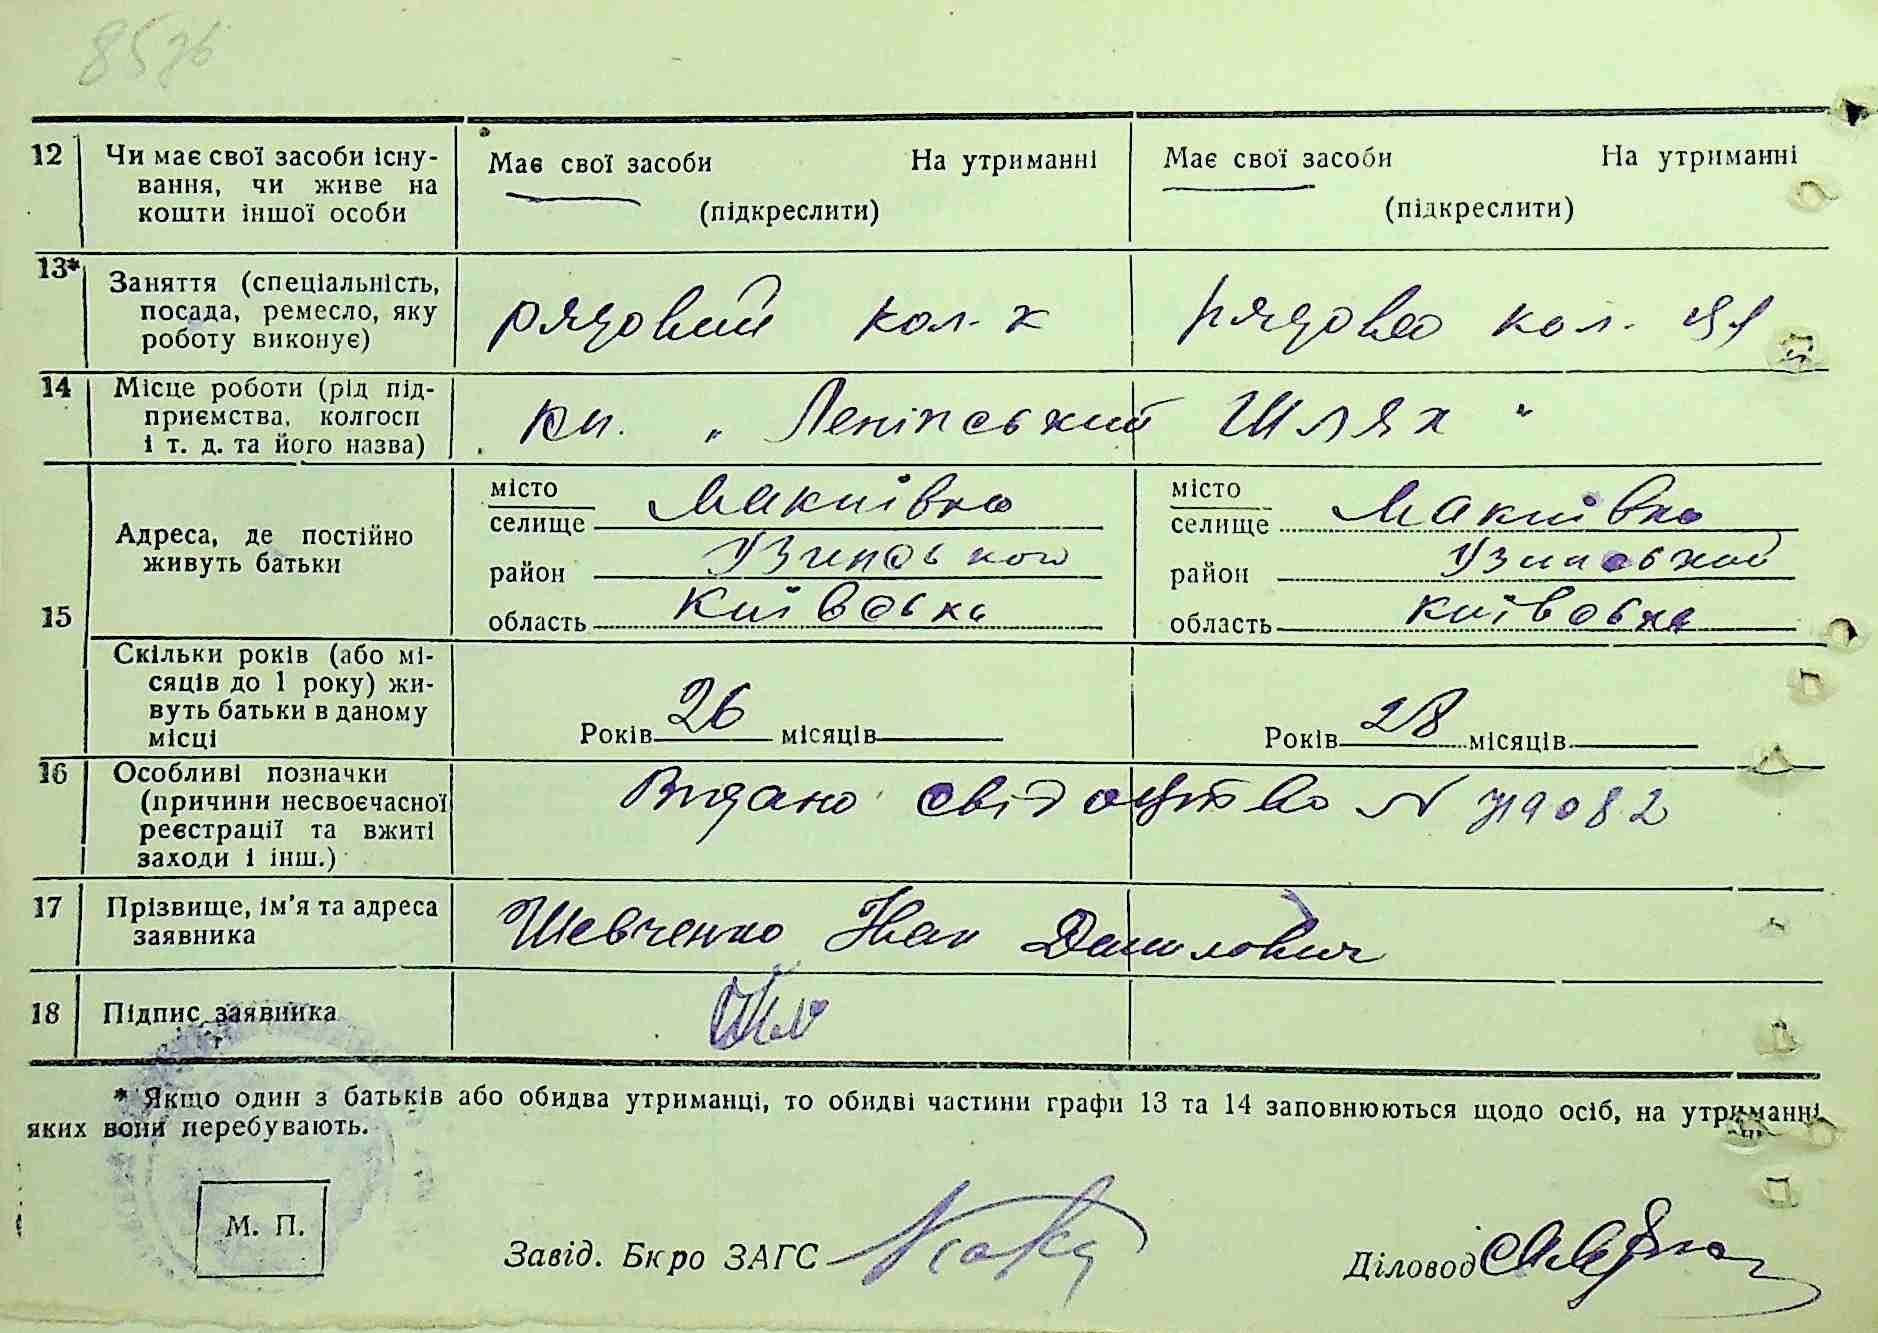 12 Чи має свої засоби існу-
вання, чи живе на
кошти іншої особи
Має свої засоби На утриманні
(підкреслити)
Має свої засоби На утриманні
(підкреслити)
13* Заняття (спеціальність,
посада, ремесло, яку
роботу виконує)
рядовий кол-к
рядова кол.
14 Місце роботи (рід під-
приємства, колгосп
і т. д. та його назва)
„Ленінський Шлях"
15 Адреса, де постійно
живуть батьки
місто
селище Макіївка
район Узинського
область Київська
місто
селище Макіївка
район Узинський
область Київська
Скільки років (або мі-
сяців до 1 року) жи-
вуть батьки в даному
місці
Років 26 місяців
Років 28 місяців
16 Особливі позначки
(причини несвоєчасної
реєстрації та вжиті
заходи і інш.)
Видано свідоцтво N
17 Прізвище, ім'я та адреса
заявника
Шевченко Іван Данилович
18 Підпис заявника
* Якщо один з батьків або обидва утриманці, то обидві частини графи 13 та 14 заповнюються щодо осіб, на утриманні
яких вони перебувають.
М. П.
Завід. Бюро ЗАГС
Діловод